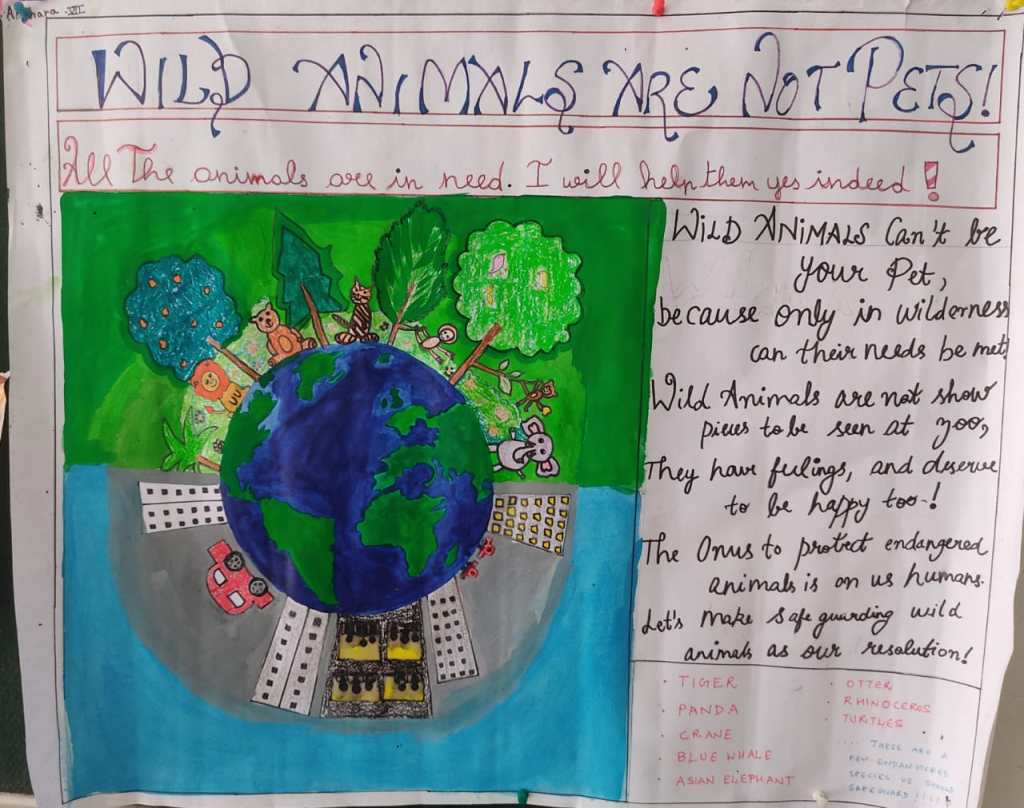 VII
WILD ANIMALS ARE NOT PETS!
All The animals are in need. I will help them yes indeed!
WILD ANIMALS Can't be
Your Pet,
because only in wilderness
can their needs be met
Wild Animals are not show
pieces to be seen at zoo,
They have feelings, and deserve
to be happy too-!
The Onus to protect endangered
animals is on us humans.
Let's make safe guarding wild
animals as our resolution!
· TIGER
· PANDA
· CRANE
· BLUE WHALE
· ASIAN ELEPHANT
· OTTER
· RHINOCEROS
· TURTLES
.... THESE ARE A
FEW ENDANGERED
SPECIES WE SHOULD
SAFEGUARD!!!!